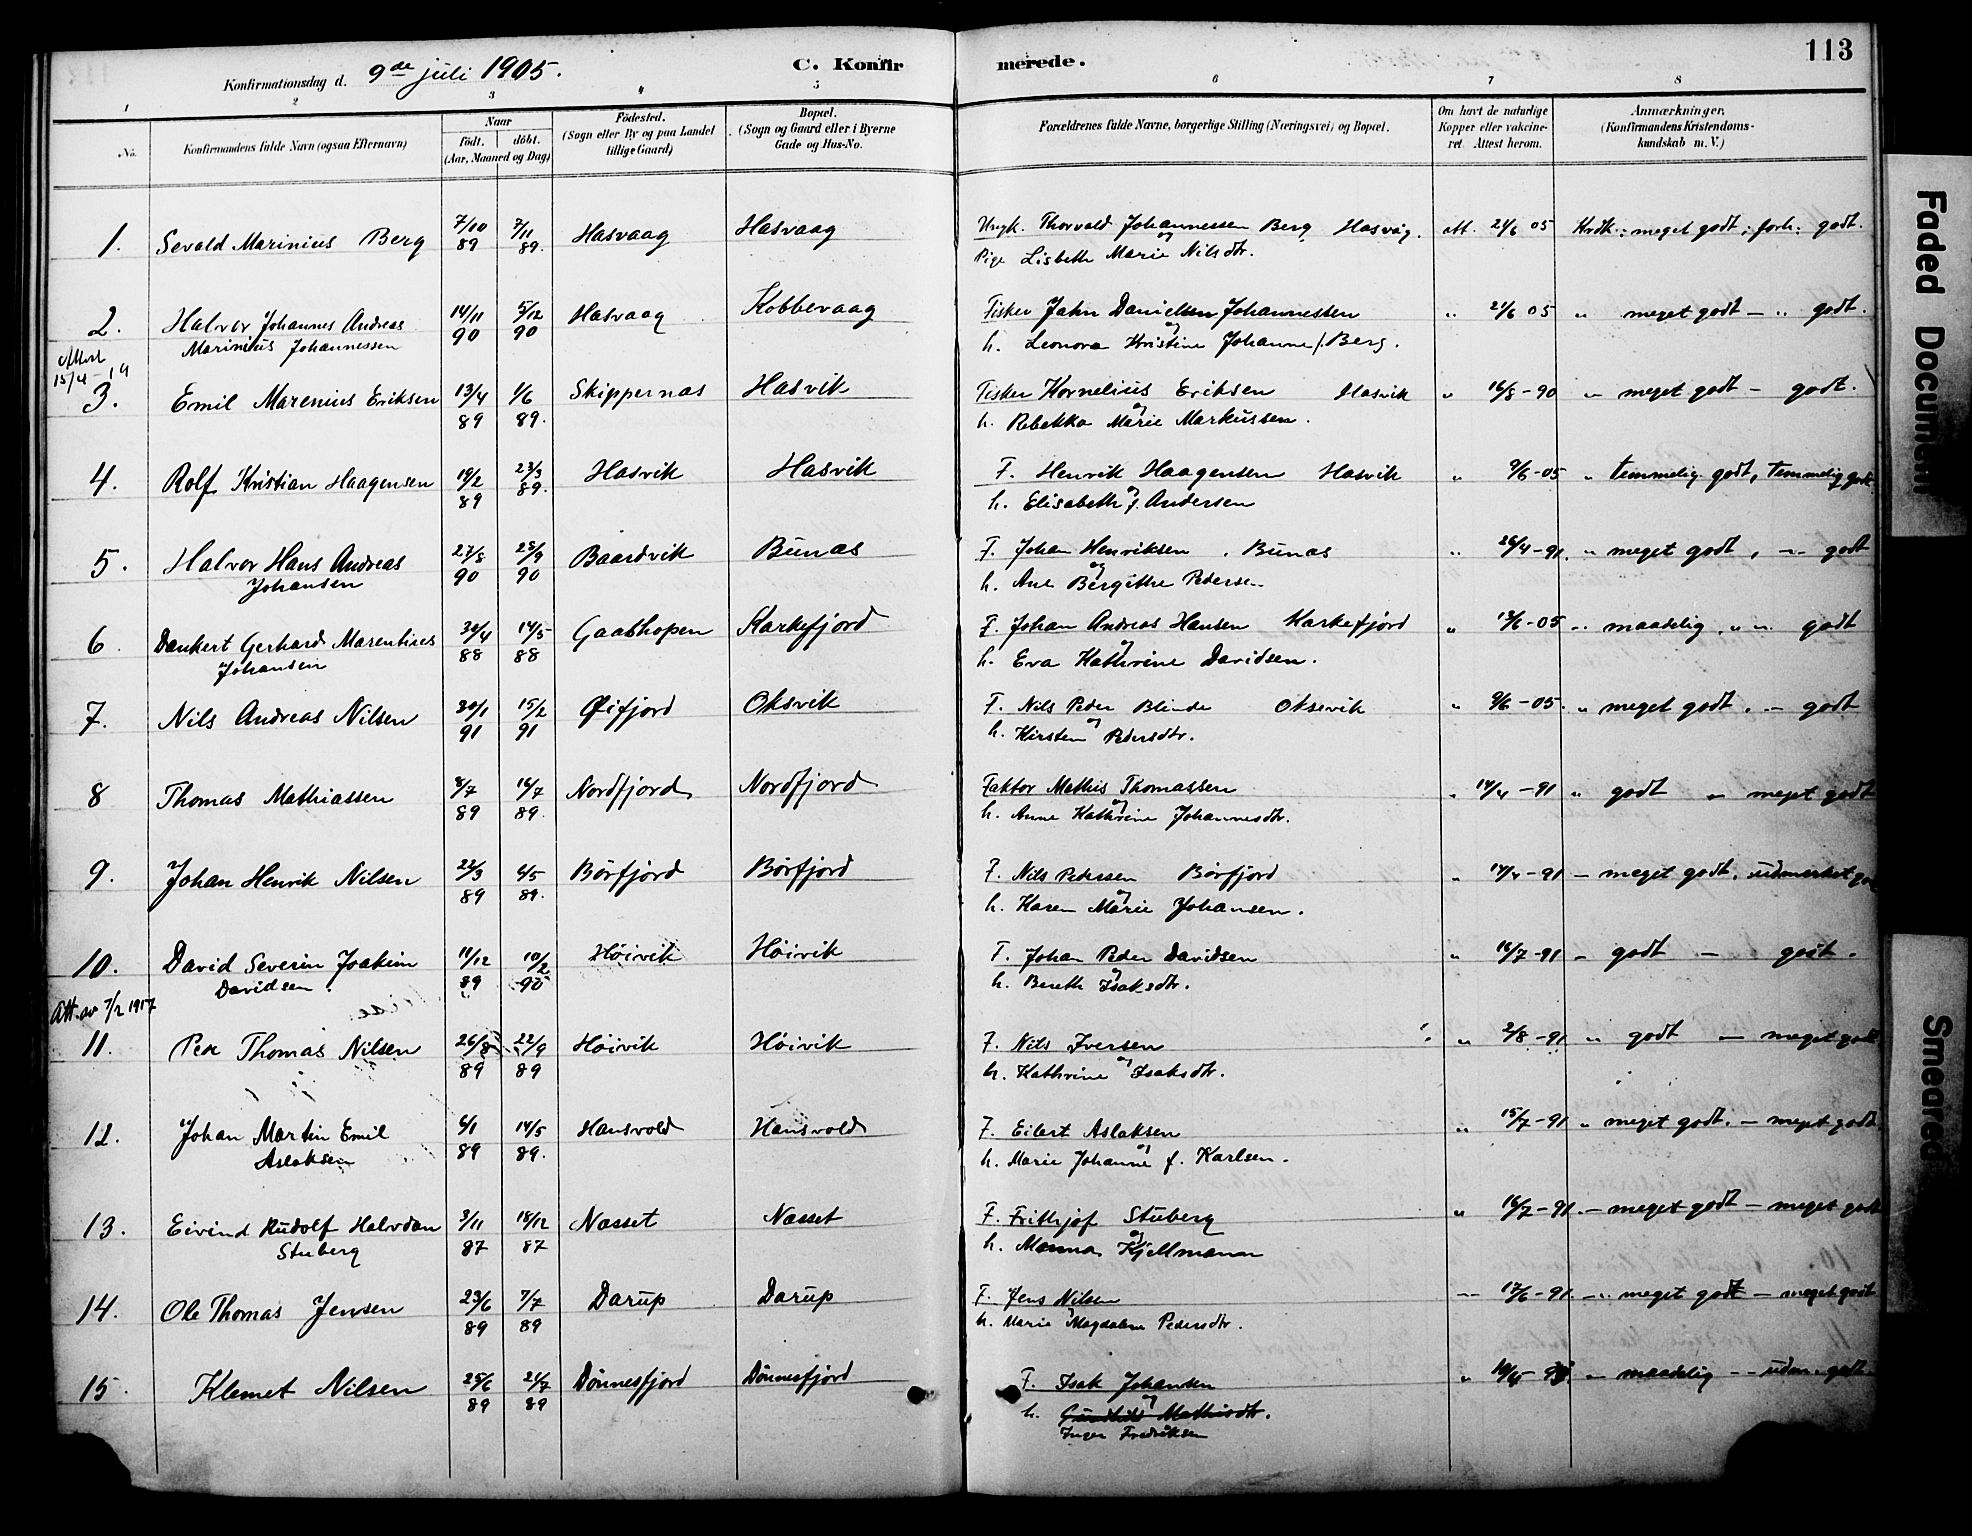 113
Konfirmationsdag d. 9de juli 1905. C. Konfirmerede.
1 2 3 4 5 6 7 8
No. Konfirmandens fulde Navn (ogsaa Efternavn) Naar født. døbt. (Aar, Maaned og Dag) Fødested. (Sogn eller By og paa Landet tillige Gaard) Bopæl. (Sogn og Gaard eller i Byerne Gade og Hus-No. Forældrenes fulde Navne, borgerlige Stilling (Næringsvei) og Bopæl. Om havt de naturlige Kopper eller vakcineret. Attest herom. Anmærkninger. (Konfirmandens Kristendomskundskab m. V.)
1. Sevald Marinius Berg 7/10 89 7/11 89. Hasvaag Hasvaag Ungk. Thorvald Johannessen Berg Hasvåg. att. 21/6 05 Krdk.: meget godt; forh: godt.
og
Pige Lisbeth Marie Nilsdtr.
2. Halvor Johannes Andreas 14/11 90 5/12 90 Hasvaag Kobbevaag Fisker Jahn Danielsen Johannessen " 21/6 05 " meget godt – " godt.
Marinius Johannessen og
h. Leonora Kristine Johanne f. Berg.
15/4 – 19
3. Emil Marenius Eriksen 13/4 89 1/6 89. Skippernas Hasvik Fisker Kornelius Eriksen Hasvik " 16/8-90 " meget godt – godt.
og
h. Rebekka Marie Markussen.
4. Rolf Kristian Haagensen 19/2 89 23/3 89. Hasvik Hasvik F. Henrik Haagensen Hasvik " 9/6-05 " temmelig godt, temmelig godt
og
h. Elisabeth f. Andersen
5. Halvor Hans Andreas 27/8 90 28/9 90 Baardvik Bunas F. Johan Henriksen. Bunas " 26/4-91. " meget godt, – godt
Johansen og
h. Ane Bergithe Pedersen
6. Dankert Gerhard Marentius 30/4 88 14/5 88 Gaashopen Karkefjord F. Johan Andreas Hansen Karkefjord " 13/6-05 " maadelig, " " godt
Johansen og
h. Eva Kathrine Davidsen.
7. Nils Andreas Nilsen 30/1 91 15/2 91 Øifjord Oksvik F. Nils Peder Blinde Oksevik " 9/6-05. " meget godt, – godt
og
h. Kirsten Pedersdtr.
8 Thomas Mathiassen 8/7 89 14/7 89. Nordfjord Nordfjord Faktor Mathis Thomassen " 14/4-91 " godt – meget godt
og
h. Anne Kathrine Johannesdtr.
9. Johan Henrik Nilsen 22/3 89 6/5 89. Børfjord Børfjord F. Nils Pedersen Børfjord " 14/4-91 – meget godt, udmerket godt
og
h. Karen Marie Johansen.
10. David Severin Joakim 11/12 89 10/2 90 Høivik Høivik F. Johan Peder Davidsen " 16/7-91 – godt – godt.
Davidsen. og
h. Bereth Isaksdtr.
Att. av 7/2 1917
11. Per Thomas Nilsen 26/8 89 22/9 89 Høivik Høivik F. Nils Iversen " 2/8-91 " godt – meget godt
og
h. Kathrine Isaksdtr.
12. Johan Martin Emil 6/1 89 14/5 89. Hansvold Hansvold F. Eilert Aslaksen " 15/7-91 " meget godt. – meget godt.
Aslaksen og
h. Marie Johanne f. Karlsen.
13. Eivind Rudolf Halvdan 3/11 87 18/12 87 Næsset Næsset F. Frithjof Stuberg " 16/7-91. – meget godt – meget godt
Stuberg og
h. Manna Kjellmann
14. Ole Thomas Jensen 23/6 89 7/7 89 Darup Darup F. Jens Nilsen – 17/6-91. – " meget godt – meget godt
og
h. Marie Magdalene Pedersdtr.
15. Klemet Nilsen 25/6 89 21/7 89 Dönnesfjord Dönnesfjord F. Isak Johansen " " maadelig – – uden. godt.
og
h. Gundhild Mathisdtr.
Inger Fredriksen
Faded Document
Smeared